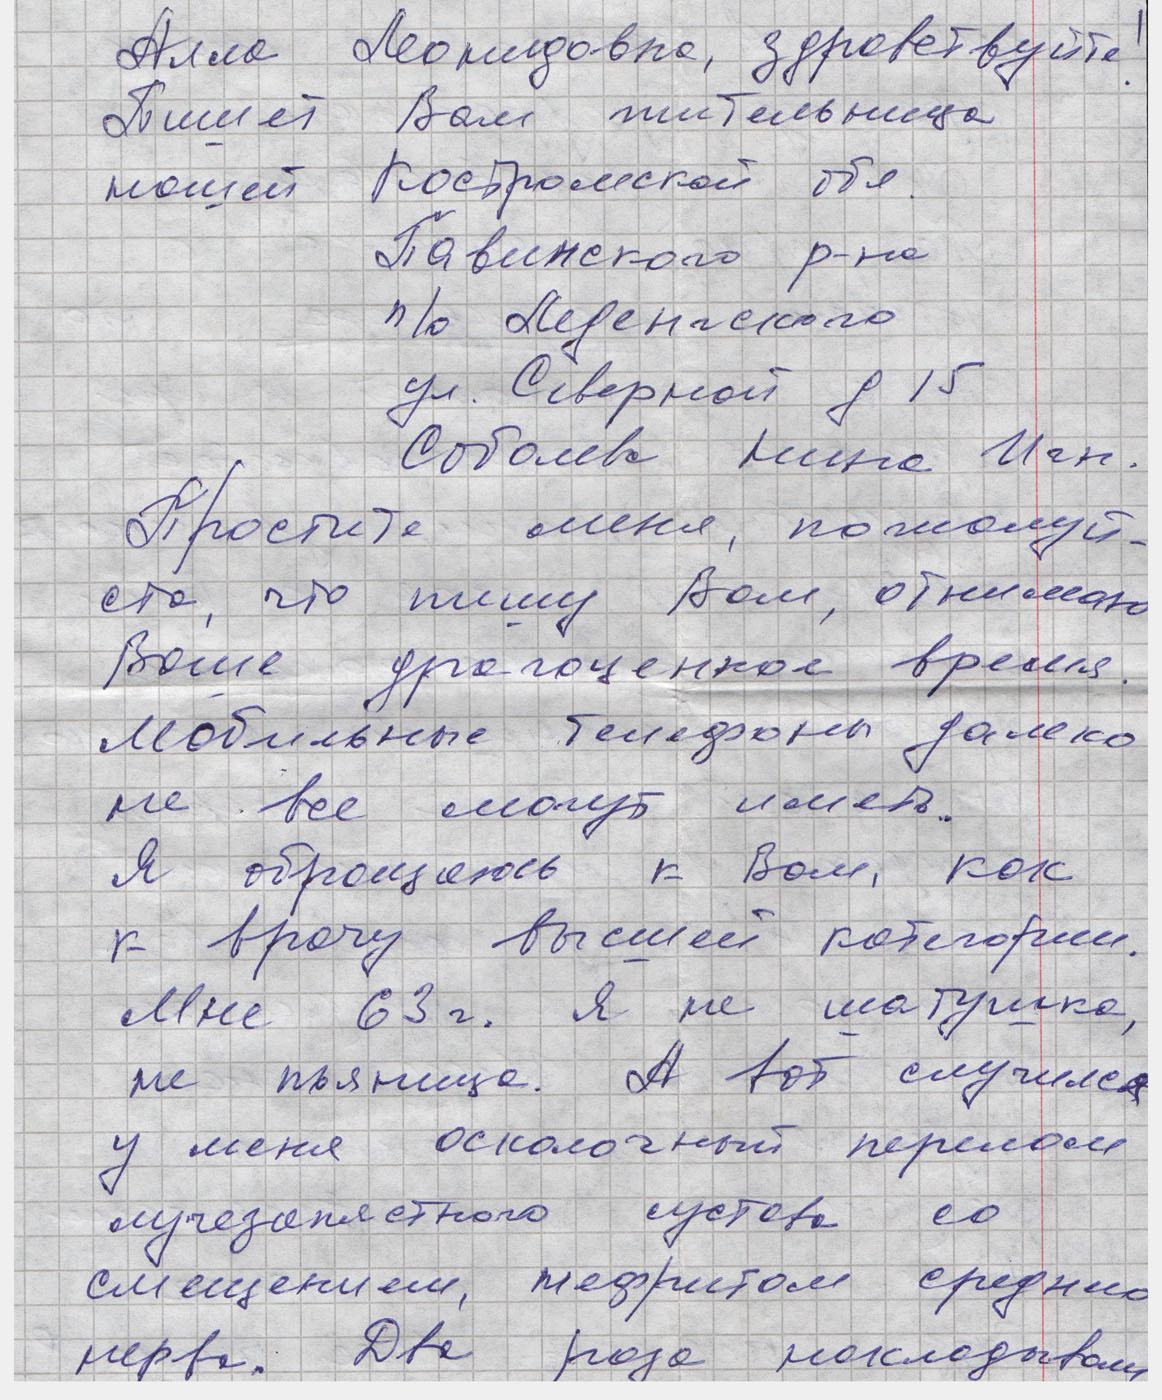 Алла Леонидовна, здравствуйте!
Пишет Вам жительница
нашей Костромской обл.
Павинского р-на
п/о Леденгского
ул. Северной д 15
Соболева Нина Игн.
Простите меня, пожалуй-
ста, что пишу Вам, отнимаю
Ваше драгоценное время.
Мобильные телефоны далеко
не все могут иметь.
Я обращаюсь к Вам, как
к врачу высшей категории.
Мне 63 г. Я не шатушка,
не пьяница. А вот случился
у меня осколочный перелом
лучезапястного сустава со
смещением, нефритом средню
нерва. Два раза накладывали